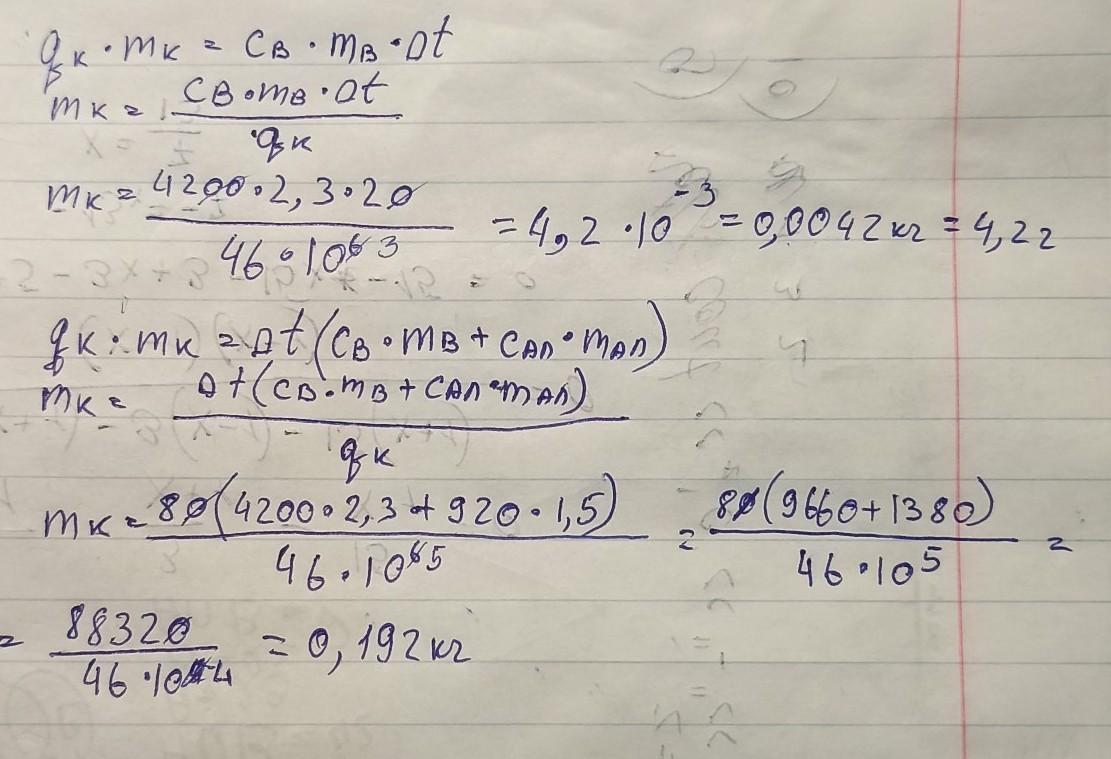 qк · mк = Cв · mв · Δt
mк = Cв · mв · Δt / qк
mк = 4200 · 2,3 · 20 / 46 · 10⁶ ³ = 4,2 · 10⁻³ = 0,0042 кг = 4,2 г
qк · mк = Δt (Cв · mв + Cал · mал)
mк = Δt (Cв · mв + Cал · mал) / qк
mк = 80 (4200 · 2,3 + 920 · 1,5) / 46 · 10⁶ ⁵ = 80 (9660 + 1380) / 46 · 10⁵ =
= 88320 / 46 · 10⁴ = 0,192 кг